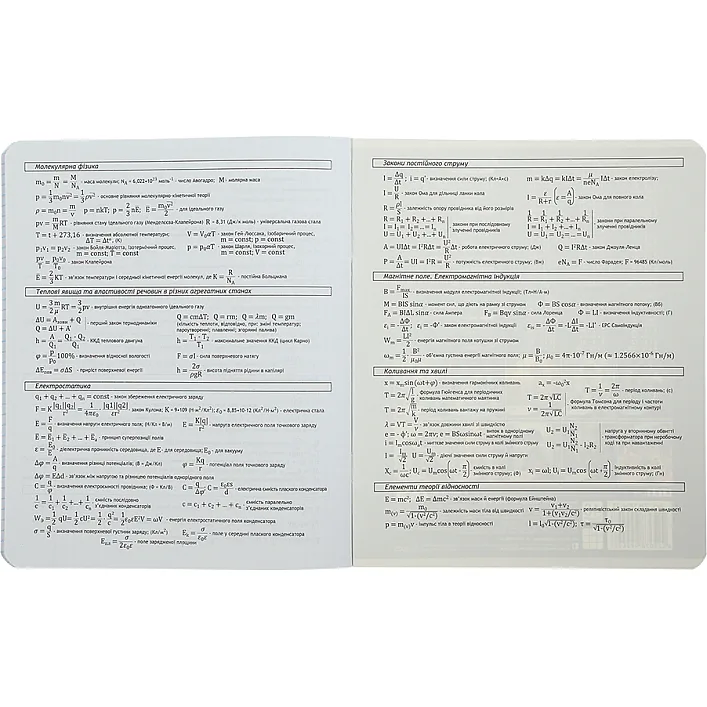 Молекулярна фізика
m₀ = m/N = M/N_A - маса молекули; N_A = 6,022×10²³ моль⁻¹ - число Авогадро; M - молярна маса
p = 1/3 m₀nv² = 1/3 ρv² - основне рівняння молекулярно кінетичної теорії
ρ = m₀n = m/v p = nkT; p = 2/3 nE; E = m₀v²/2 - для ідеального газу
pv = m/M RT - рівняння стану ідеального газу (Менделєєва-Клапейрона) R = 8,31 (Дж/к моль) - універсальна газова стала
T = t + 273,16 - визначення абсолютної температури; ΔT = Δt°, (К)
V = V₀αT - закон Гей Люссака, ізобаричний процес, m = const; p = const
p₁v₁ = p₂v₂ - закон Бойля-Маріотта, ізотермічний процес, m = const; T = const
p = p₀αT - закон Шарля, ізохорний процес, m = const; V = const
pv/T = p₀v₀/T₀ - закон Клапейрона
E = 2/3 KT - зв'язок температури і середньої кінетичної енергії молекул, де K = R/N_A - постійна Больцмана
Теплові явища та властивості речовин в різних агрегатних станах
U = 3/2 m/μ RT = 3/2 pv - внутрішня енергія одноатомного ідеального газу
ΔU = A_зовн + Q
Q = ΔU + A' - перший закон термодинаміки
Q = cmΔT; Q = rm; Q = λm; Q = qm
(кількість теплоти, відповідно, при: зміні температури; пароутворенні; плавленні; згоранні палива)
h = A/Q₁ = Q₁-Q₂/Q₁ - ККД теплового двигуна h = T₁-T₂/T₁ - максимальне значення ККД (цикл Карно)
φ = p/p₀ 100% - визначення відносної вологості F = σl - сила поверхневого натягу
ΔE_пов = σΔS - приріст поверхневої енергії h = 2σ/ρgR - висота підняття рідини в капілярі
Електростатика
q₁ + q₂ + ... + qₙ = const - закон збереження електричного заряду
F = K |q₁||q₂|/r² = 1/4πε₀ |q1||q2|/r² - закон Кулона; K = 9×10⁹ (Н·м²/Кл²); ε₀ = 8,85×10-12 (Кл²/Н·м²) - електрична стала
E = F/q - визначення напруги електричного поля; (Н/Кл = В/м) E = K|q|/r² - напруга електричного поля точкового заряду
E = E₁ + E₂ + ... + Eₙ - принцип суперпозиції полів
- діелектрична проникність середовища, де E - для середовища; E₀ - для вакууму
Δφ = A/q - визначення різниці потенціалів; (В = Дж/Кл) φ = Kq/r - потенціал поля точкового заряду
Δφ = EΔd - зв'язок між напругою та різницею потенціалів однорідного поля
C = q/φ - визначення електроємності провідника; (Ф = Кл/В) C = q/Δφ; C = ε₀εs/d - електрична ємність плаского конденсатора
1/c = 1/c₁ + 1/c₂ + ... + 1/cₙ ємність послідовно з'єднаних конденсаторів c = c₁ + c₂ + ... + cₙ ємність паралельно з'єднаних конденсаторів
- енергія електростатичного поля конденсатора
σ = q/S - визначення поверхневої густини заряду; (Кл/м²) - поле у середині плаского конденсатора
- поле зарядженої площини
Закони постійного струму
I = Δq/Δt; i = q' - визначення сили струму; (Кл=А×с) m = kΔq = kIΔt = - закон електролізу;
I = U/R - закон Ома для ділянки кола I = ε/R+r - закон Ома для повного кола
R = ρl/S - залежність опору провідника від його розмірів
R = R₁ + R₂ +...+ Rₙ
I = I₁ = I₂ =...= Iₙ
U = U₁ + U₂ +...+ Uₙ
закони при послідовному з'єднанні провідників
1/R = 1/R₁ + 1/R₂ +...+ 1/Rₙ
I = I₁ + I₂ +...+ Iₙ
U = U₁ = U₂ =...= Uₙ
закони при паралельному з'єднанні провідників
A = UIΔt = I²RΔt = U²/R Δt - робота електричного струму; (Дж) Q = I²RΔt - закон Джоуля Ленца
P = A/Δt = UI = I²R = U²/R - потужність електричного струму; (Вт) eN_A = F - число Фарадея; F = 96485 (Кл/моль)
Магнітне поле. Електромагнітна індукція
B = - визначення модуля електромагнітної індукції; (Тл=Н/А·м)
M = BIS sinα - момент сил, що діють на рамку зі струмом Φ = BS cosα - визначення потоку; (Вб)
F_A = BIΔL sinα - сила Ампера F_Л = Bqv sinα - сила Лоренца Φ = LI - визначення індуктивності; (Г)
- закон електромагнітної індукції - ЕРС Самоіндукція
W_m = LI²/2 - енергія магнітного поля котушки зі струмом
- об'ємна густина енергії магнітного поля;
Коливання та хвилі
x = x_m sin(ωt+φ) - визначення гармонічних коливань
T = 1/ν = 2π/ω - період коливань; (с)
T = 2π√l/g формула Гюйгенса для періодичних коливань математичного маятника
T = 2π√LC формула Томсона для періоду і частоти коливань в електромагнітному контурі
період коливань вантажу на пружині
λ = VT = V/ν - зв'язок довжини хвилі зі швидкістю
виток в однорідному магнітному полі
напруга у вторинному обвитті трансформатора при неробочому ході та при навантаженні
- миттєве значення змінного струму
- діючі значення сили струму й напруги
ємність в колі змінного струму; (Ф)
індуктивність в колі змінного струму; (Гн)
Елементи теорії відносності
E = mc²; ΔE = Δmc² - зв'язок маси й енергії (формула Ейнштейна)
m(v) = m₀/√1-(v²/c²) - залежність маси тіла від швидкості v = v₁+v₂/1+(v₁v₂/c²) - релятивістський закон складання швидкості
p = m(v)v - імпульс тіла в теорії відносності l = l₀√1-(v²/c²); τ = τ₀/√1-(v²/c²)